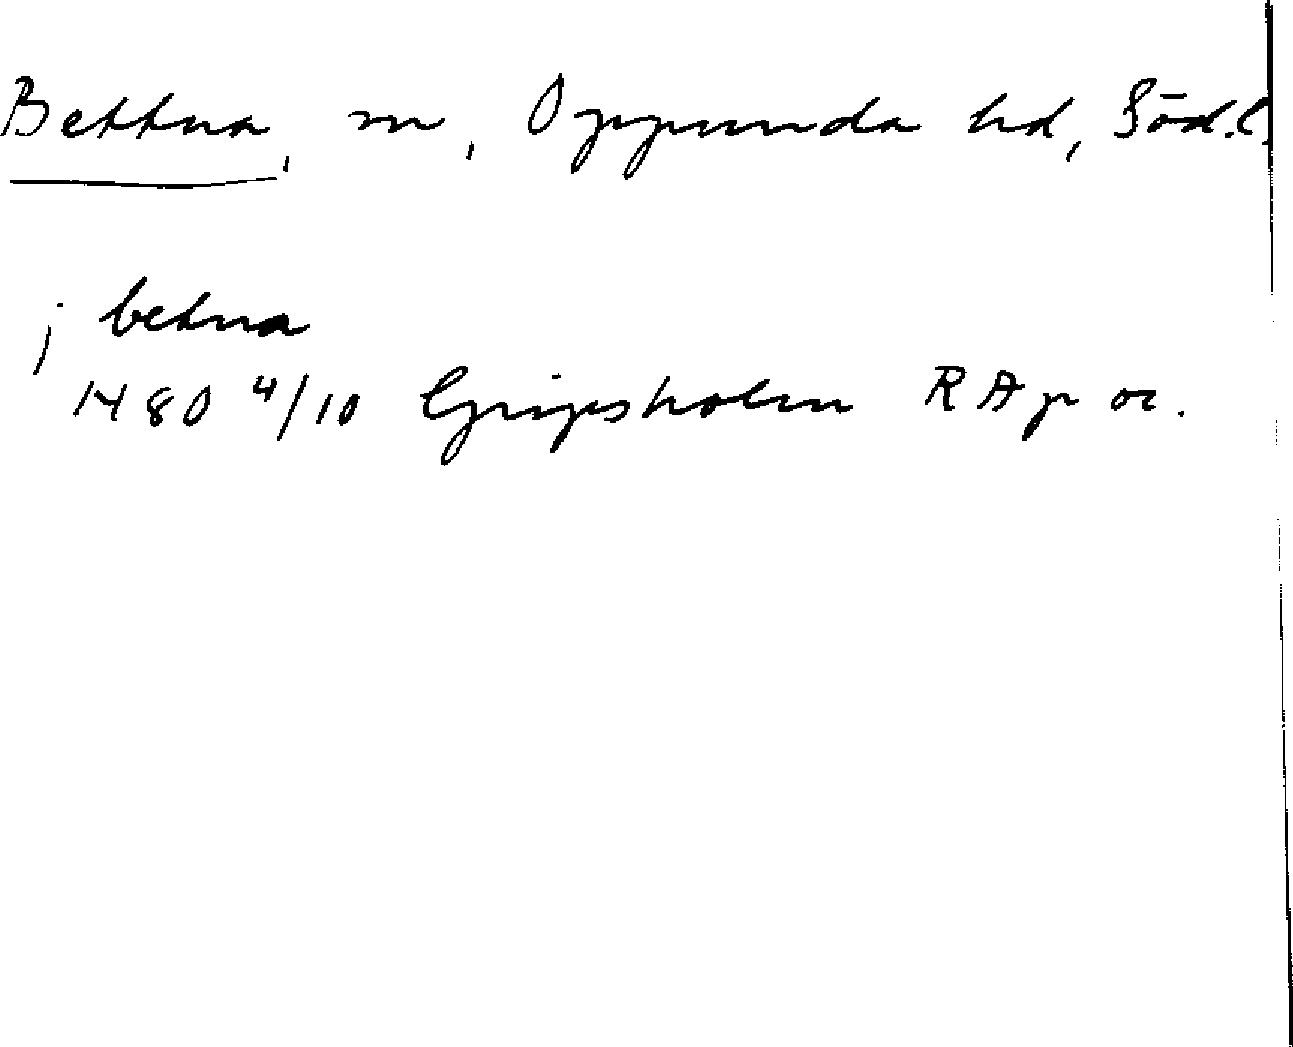 Bettna, sn, Oppunda hd, Södl.
j betna
1480 4/10 Gripsholm RAp or.